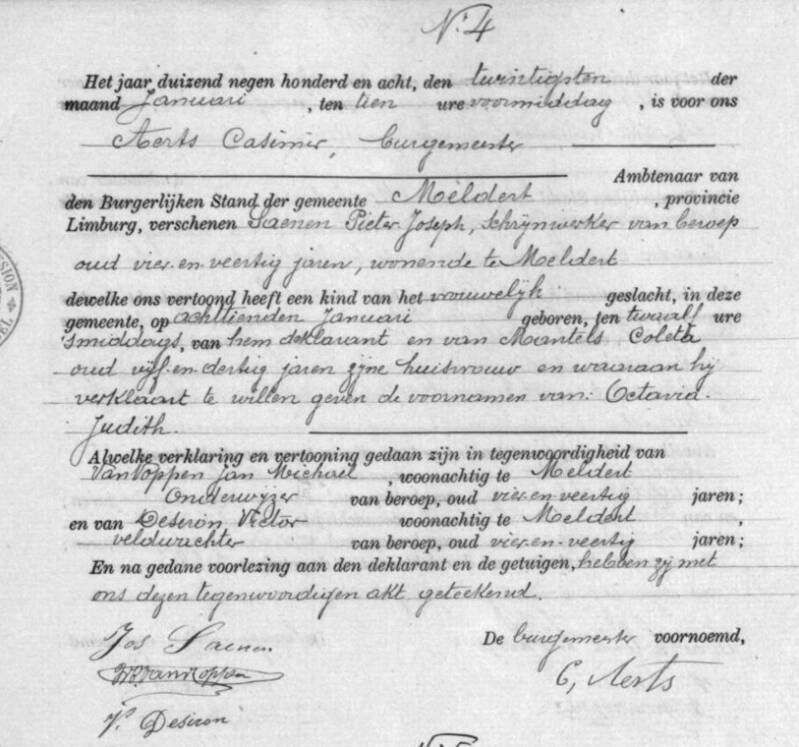 N.º 4
Het jaar duizend negen honderd en acht, den twintigsten der
maand Januari, ten tien ure voormiddag, is voor ons
Aerts Casimir, burgemeester
Ambtenaar van
den Burgerlijken Stand der gemeente Meldert, provincie
Limburg, verschenen Saenen Pieter Joseph, schrijnwerker van beroep
oud vier en veertig jaren, wonende te Meldert
dewelke ons vertoond heeft een kind van het vrouwelijk geslacht, in deze
gemeente, op achttienden Januari geboren, ten twaalf ure
'smiddags, van hem deklarant en van Mantels Coleta
oud vijf en dertig jaren zijne huisvrouw en waaraan hij
verklaart te willen geven de voornamen van: Octavia
Judith.
Alwelke verklaring en vertooning gedaan zijn in tegenwoordigheid van
Van Roppen Jan Michael, woonachtig te Meldert
Onderwijzer van beroep, oud vier en veertig jaren;
en van Desiron Victor woonachtig te Meldert,
veldwachter van beroep, oud vier en veertig jaren;
En na gedane voorlezing aan den deklarant en de getuigen, hebben zij met
ons dezen tegenwoordigen akt geteekend.
Jos Saenen
De burgemeester voornoemd,
Van Roppen
C, Aerts
V. Desiron